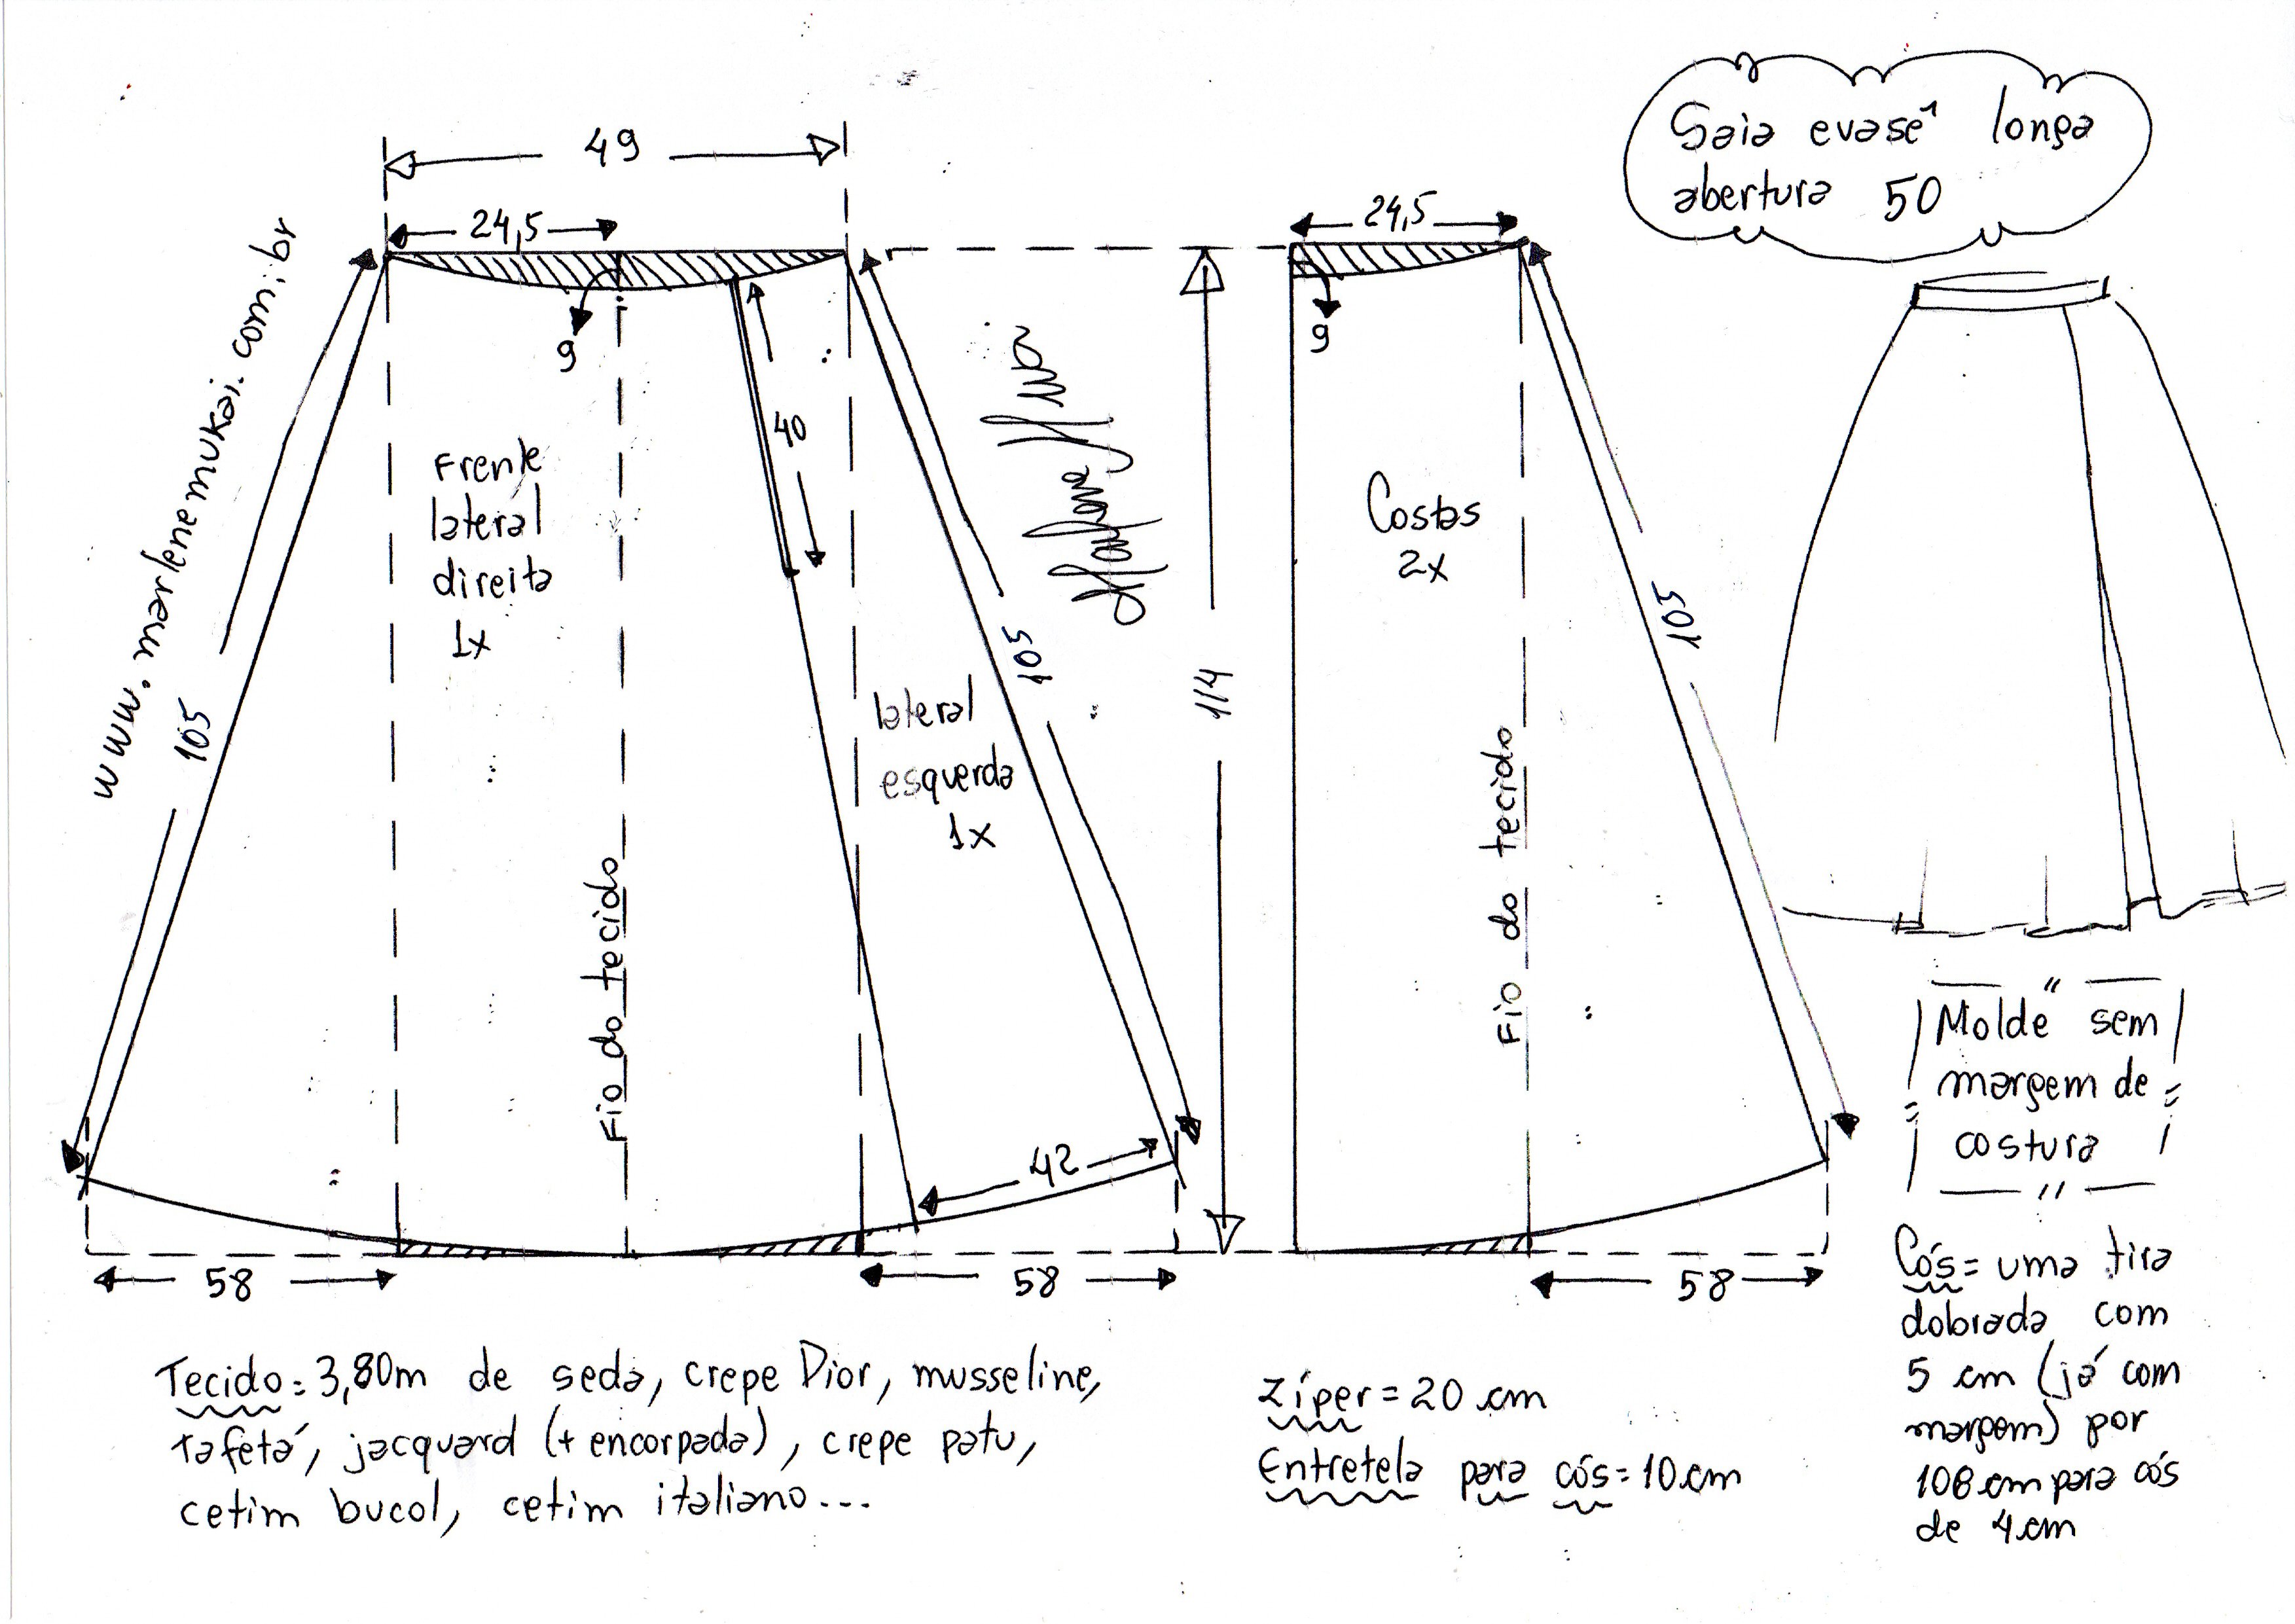 Saia evasê longa
abertura 50
49
24,5
9
40
Frente
lateral
direita
1x
www.marlenemukai.com.br
105
lateral
esquerda
1x
105
Fio do tecido
42
58
58
114
24,5
9
Costas
2x
105
Fio do tecido
58
Molde sem
margem de
costura
Cós = uma tira
dobrada com
5 cm (já com
margem) por
108 cm para cós
de 4 cm
Tecido = 3,80m de seda, crepe Dior, musseline,
tafetá, jacquard (+ encorpada), crepe patu,
cetim bucol, cetim italiano...
Zíper = 20 cm
Entretela para cós = 10 cm